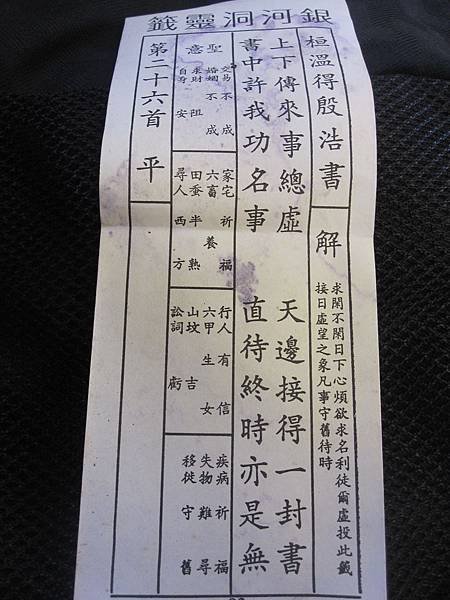 銀河洞靈籤
桓溫得殷浩書
解
求閑不閑日下心煩欲求名利徒爾虛投此籤
接日虛望之象凡事守舊待時
上下傳來事總虛 天邊接得一封書
書中許我功名事 直待終時亦是無
聖意
交易不成
婚姻不成
求財阻
自身安
家宅祈福
六畜養
田蚕半熟
尋人西方
行人有信
六甲生女
山坟吉
訟詞虧
疾病祈福
失物難尋
移徙守舊
第二十六首 平